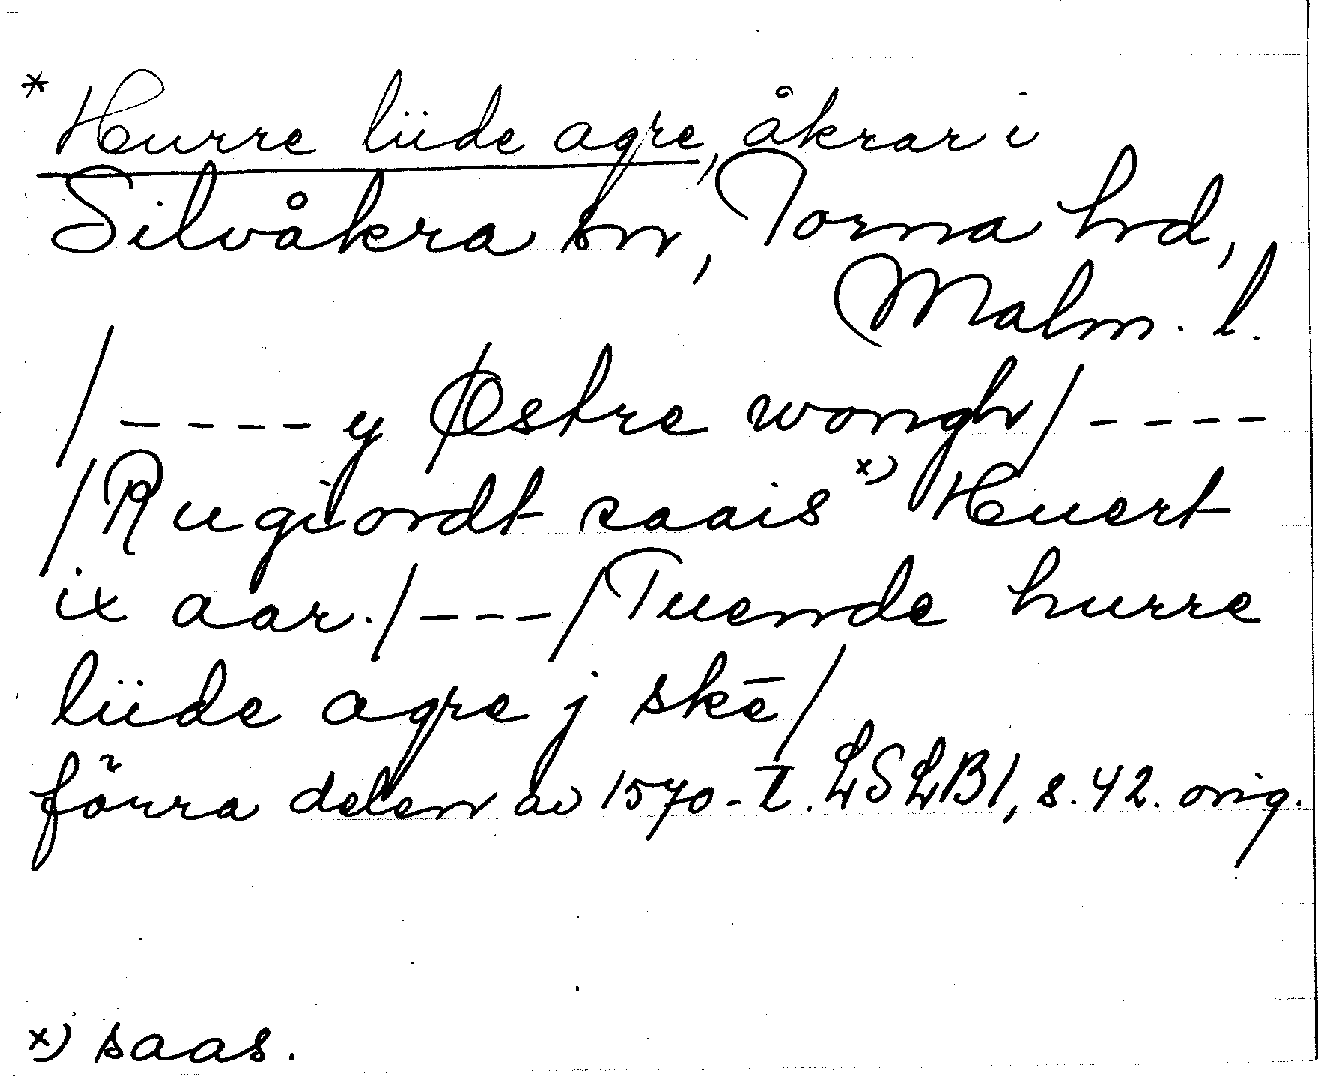 * Hurre lüde agre, åkrar i
Silvåkra sn, Torna hd,
Malm. l.
/ - - - - - y Østre wongh/ - - - -
/Rugiordt saais x) Huert
ix aar./ - - - /Tuende hurre
lüde agre j skē/
förra delen av 1570-t. LSLB1, s. 42. orig.
x) saas.